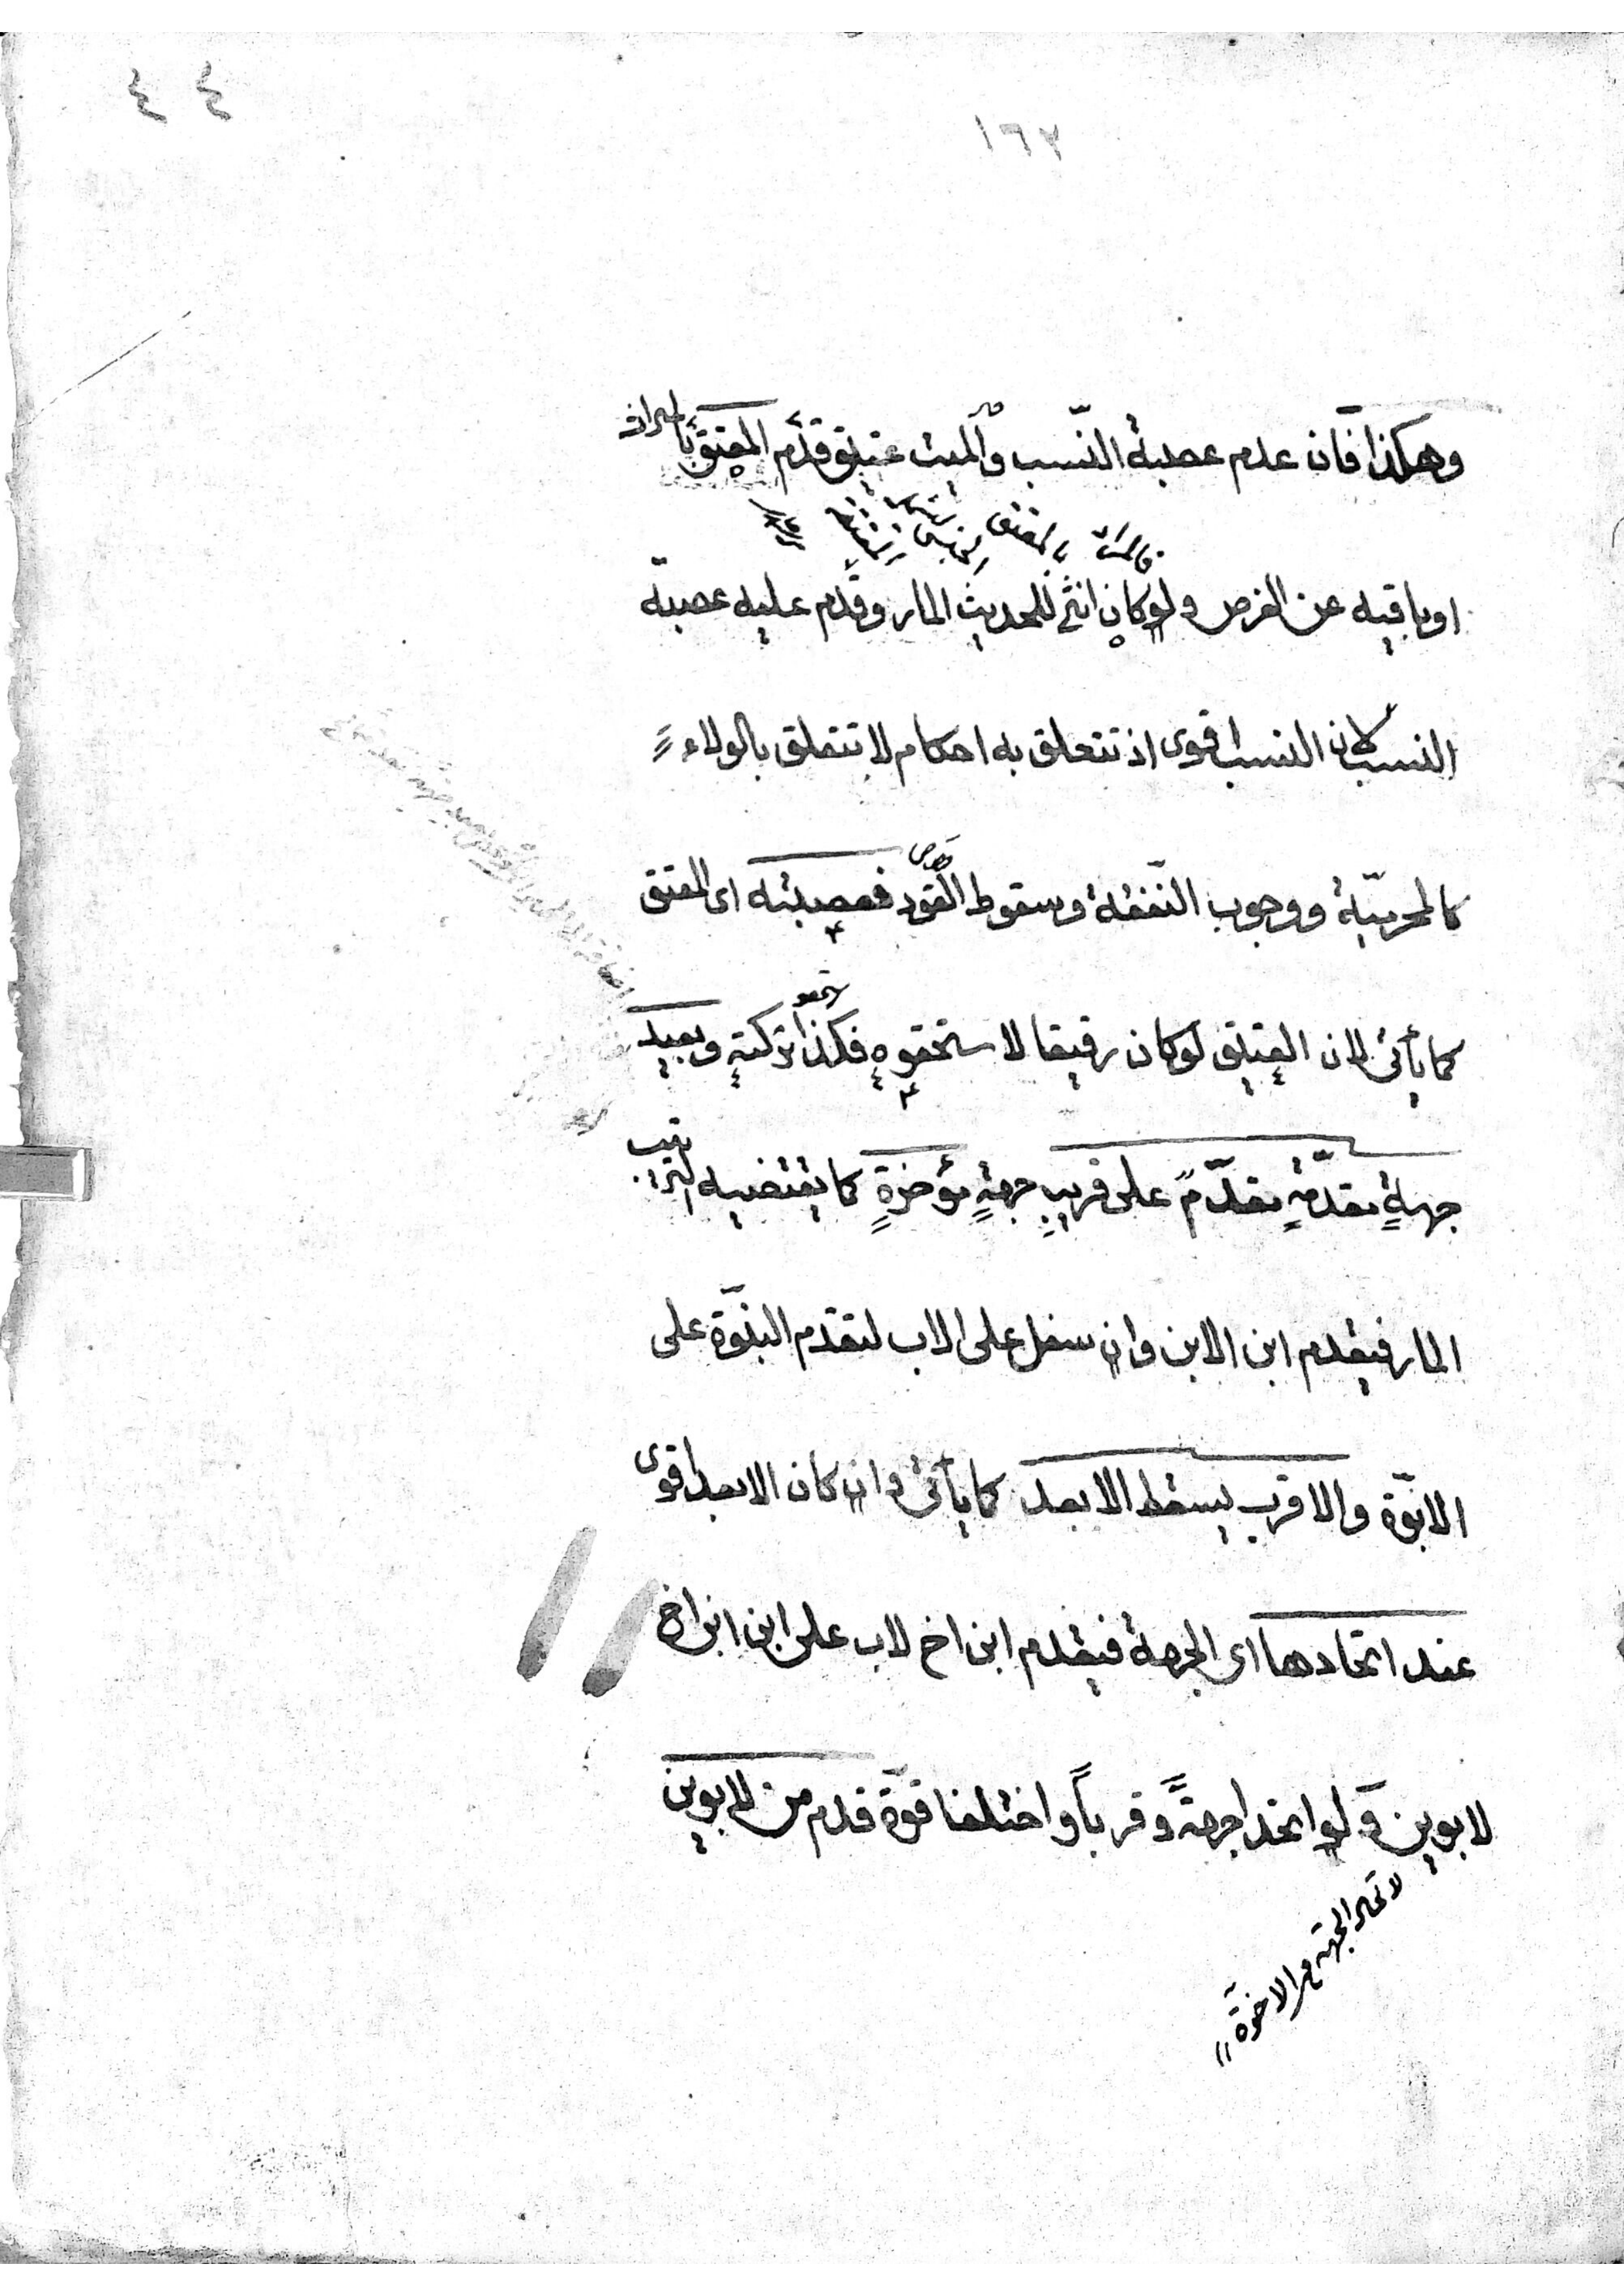 ٤٤
١٦٧
وهكذا فان عدم عصبة النّسب والميت عتيق قدّم المعتق بالميراث
او باقيه عن الفرض ولو كان انثى للحديث المار وقدّم عليه عصبة
النسب لان النسب اقوى اذ تتعلق به احكام لا تتعلق بالولاء
كالمحرميّة ووجوب النّفقة وسقوط القود فعصبته اى المعتق
قصاص
كما يأتى لان العتيق لو كان رقيقا لاستحقوه فكذا تركته وبعيد
جهةٍ مقدّمةٍ مقدّمٌ على قريبِ جهةٍ مؤخرةٍ كما يقتضيه الترتيب
المار فيقدم ابن الابن وان سفل على الاب لتقدم البنوّة على
الابوّة والاقرب يسقط الابعد كما يأتى وان كان الابعد اقوى
عند اتحادها اى الجهة فيقدم ابن اخ لاب على ابن ابن اخ
لابوين ولو اتحدا جهةً وقرباً واختلفا قوّة قدم من لابوين